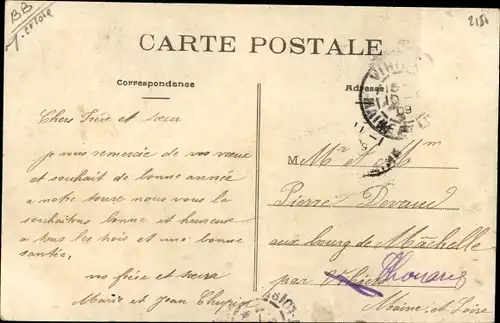 BB
2151
CARTE POSTALE
Correspondance
Adresse
Chers frère et sœur
je vous remercie de vos vœux
et souhait de bonne année
a notre tour nous vous la
souhaitons bonne et heureuse
a tous les trois et une bonne
santée,
vos frère et sœur
Marie et Jean
M Mr et Mm
Pierre Devaud
aux bourg de Machelle
par Vihiers Thouarcé
Maine et Loire